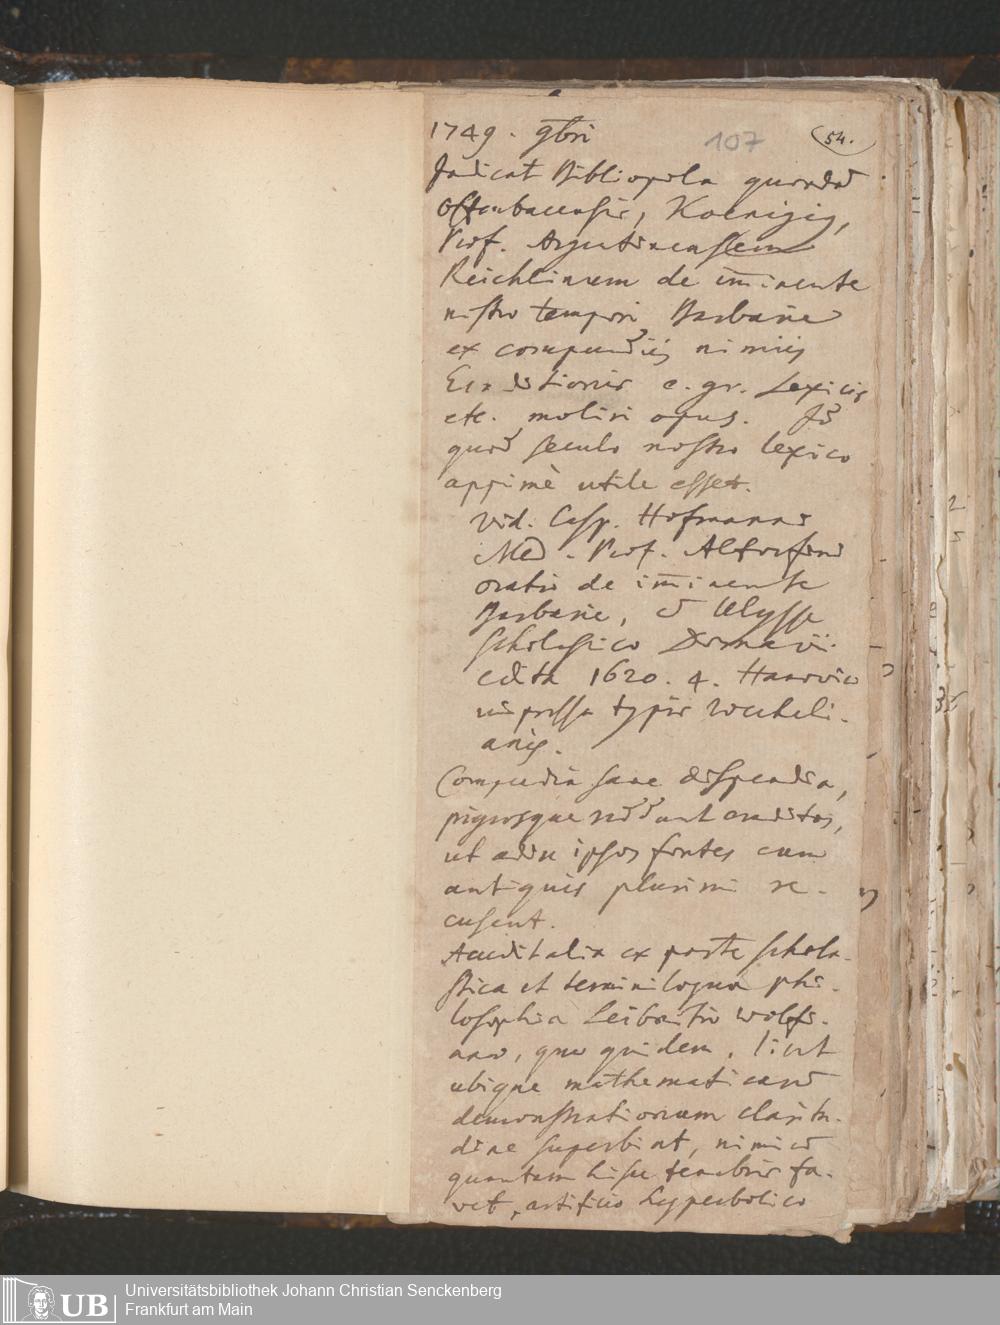 1749. 9bri
107
54.
Indicat Bibliopola quondam
Offenbacensis, Koenigius,
Prof. Argentinensem
Reichlinum de imminente
nostro tempori Barbarie
ex compendiis nimiis
Eruditionis e. gr. Lexicis
etc. moliri opus. Id
quod seculo nostro lexico
apprimè utile esset.
vid. Casp. Hofmanni
Med. Prof. Altorfini
oratio de imminente
Barbarie, Ulysse
Scholastico Dornavii
edita 1620. 4. Hanovio
impressa typis Wecheli-
anis.
Compendia sane dispendia,
pigrosque reddunt eruditos,
ut adire ipsos fontes cum
antiquis plurimi re-
cusent.
Accidit alia ex parte schola-
stica et terminilogua phi-
losophia Leibnitio Wolfi-
ana, quae quidem, licet
ubique mathematicarum
demonstrationum clari-
dine superbiat, nimium
quantum hisce tenebris fa-
vet, artificio hyperbolico
Universitätsbibliothek Johann Christian Senckenberg
Frankfurt am Main
UB